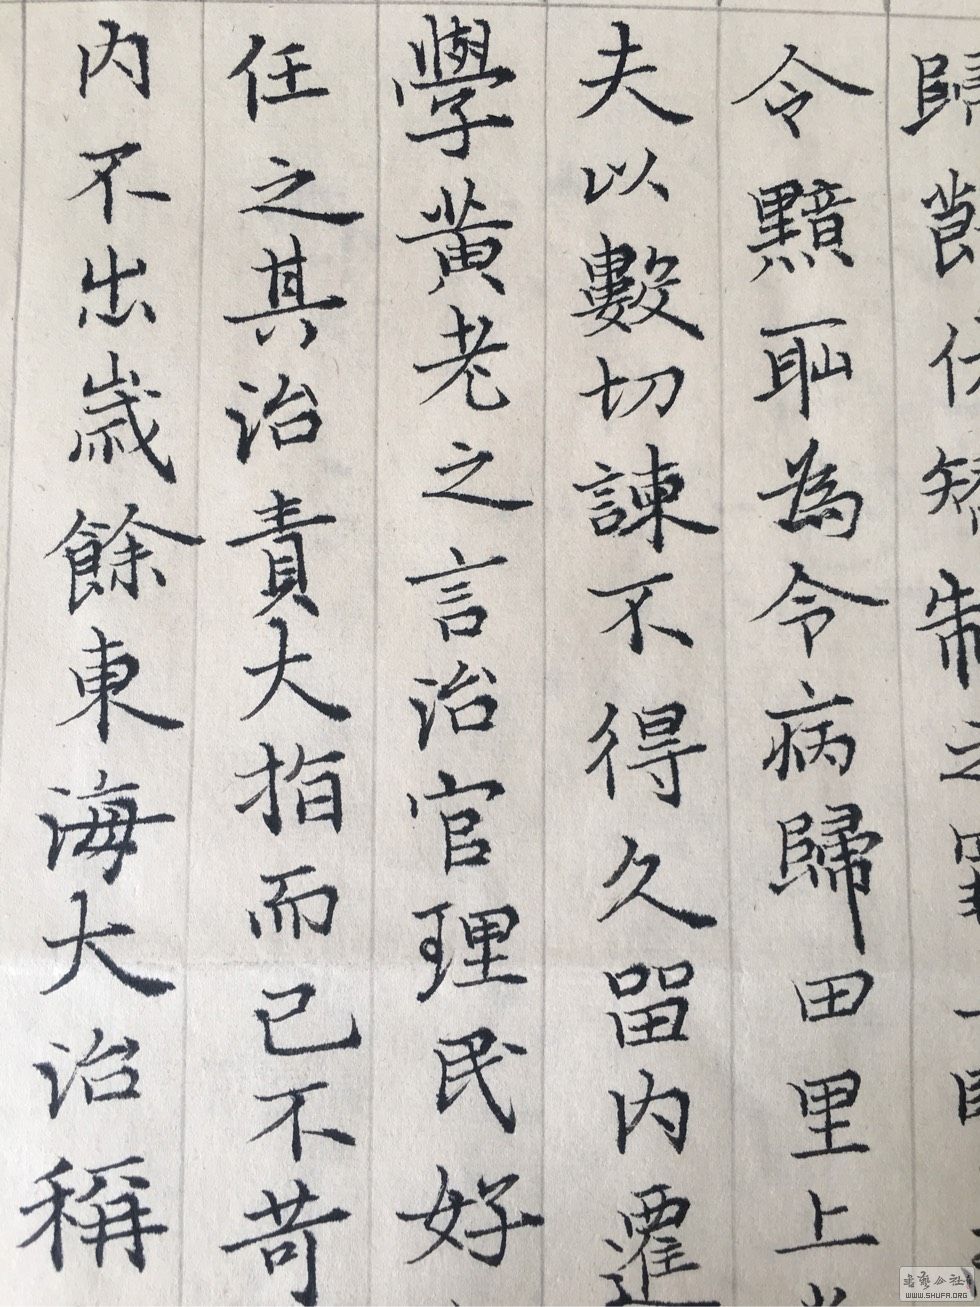 歸節伏矯制之罪上賢
令黯耻為令病歸田里上
夫以數切諫不得久留内遷
學黄老之言治官理民好
任之其治責大指而已不苛
内不出歲餘東海大治稱
书艺公社
WWW.SHUFA.ORG